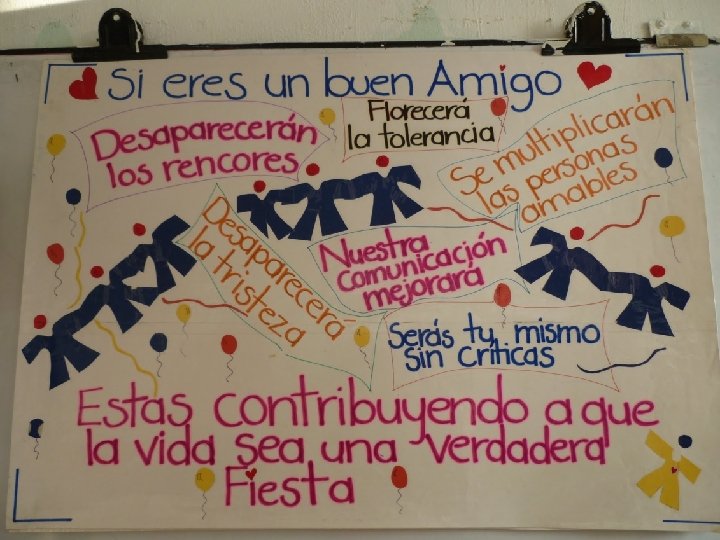 Si eres un buen Amigo
Desaparecerán
los rencores
Florecerá
la tolerancia
Se multiplicarán
las personas
amables
Desaparecerá
la tristeza
Nuestra
comunicación
mejorará
Serás tu mismo
sin criticas
Estas contribuyendo a que
la vida sea una verdadera
Fiesta